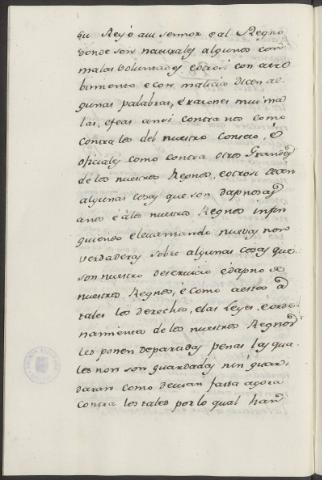 su Rey ó á su sennor e al Regno
donde son naturales algunos con
malas voluntades e otrosi con atre
bimento e con malicia dicen al-
gunas palabras, e razones mui ma
las, e feas ansi contra nos como
contra los del nuestro Consejo, e
oficiales como contra otros Grandes
de los nuestros Regnos, e otrosi dicen
algunas cosas que son dapnosas
a nos e á los nuestros Regnos infin
guiendo e levantando nuevas non
verdaderas sobre algunas cosas que
son nuestro deservicio e dapno de
nuestros Regnos, e como a estos a
tales los derechos, e las Leyes, e orde
namientos de los nuestros Regnos
les ponen departidas penas las qua
les non son guardadas nin guar
daran como devian fasta agora
contra los tales por lo qual han